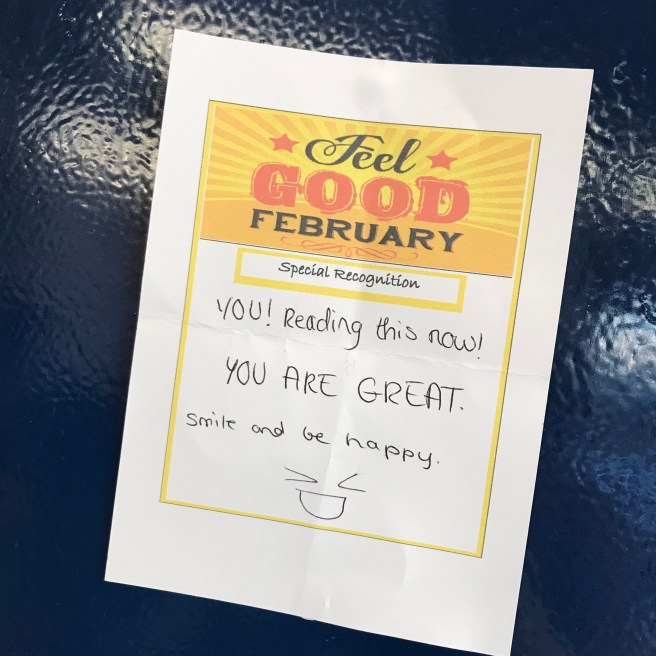 Feel
GOOD
FEBRUARY
Special Recognition
YOU! Reading this now!
YOU ARE GREAT.
Smile and be happy.